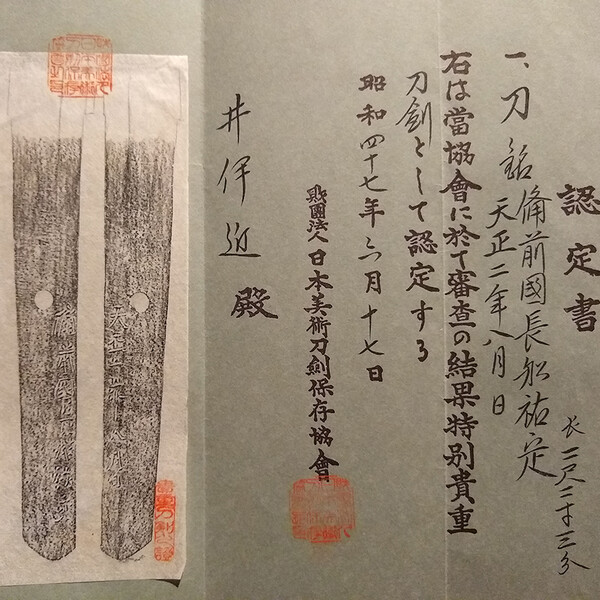 認定書
一、刀 銘 備前國長船祐定
天正二年八月日
長 二尺二寸三分
右は當協會に於て審査の結果特別貴重
刀劍として認定する
昭和四十七年六月十七日
財團法人日本美術刀劍保存協會
井伊近殿